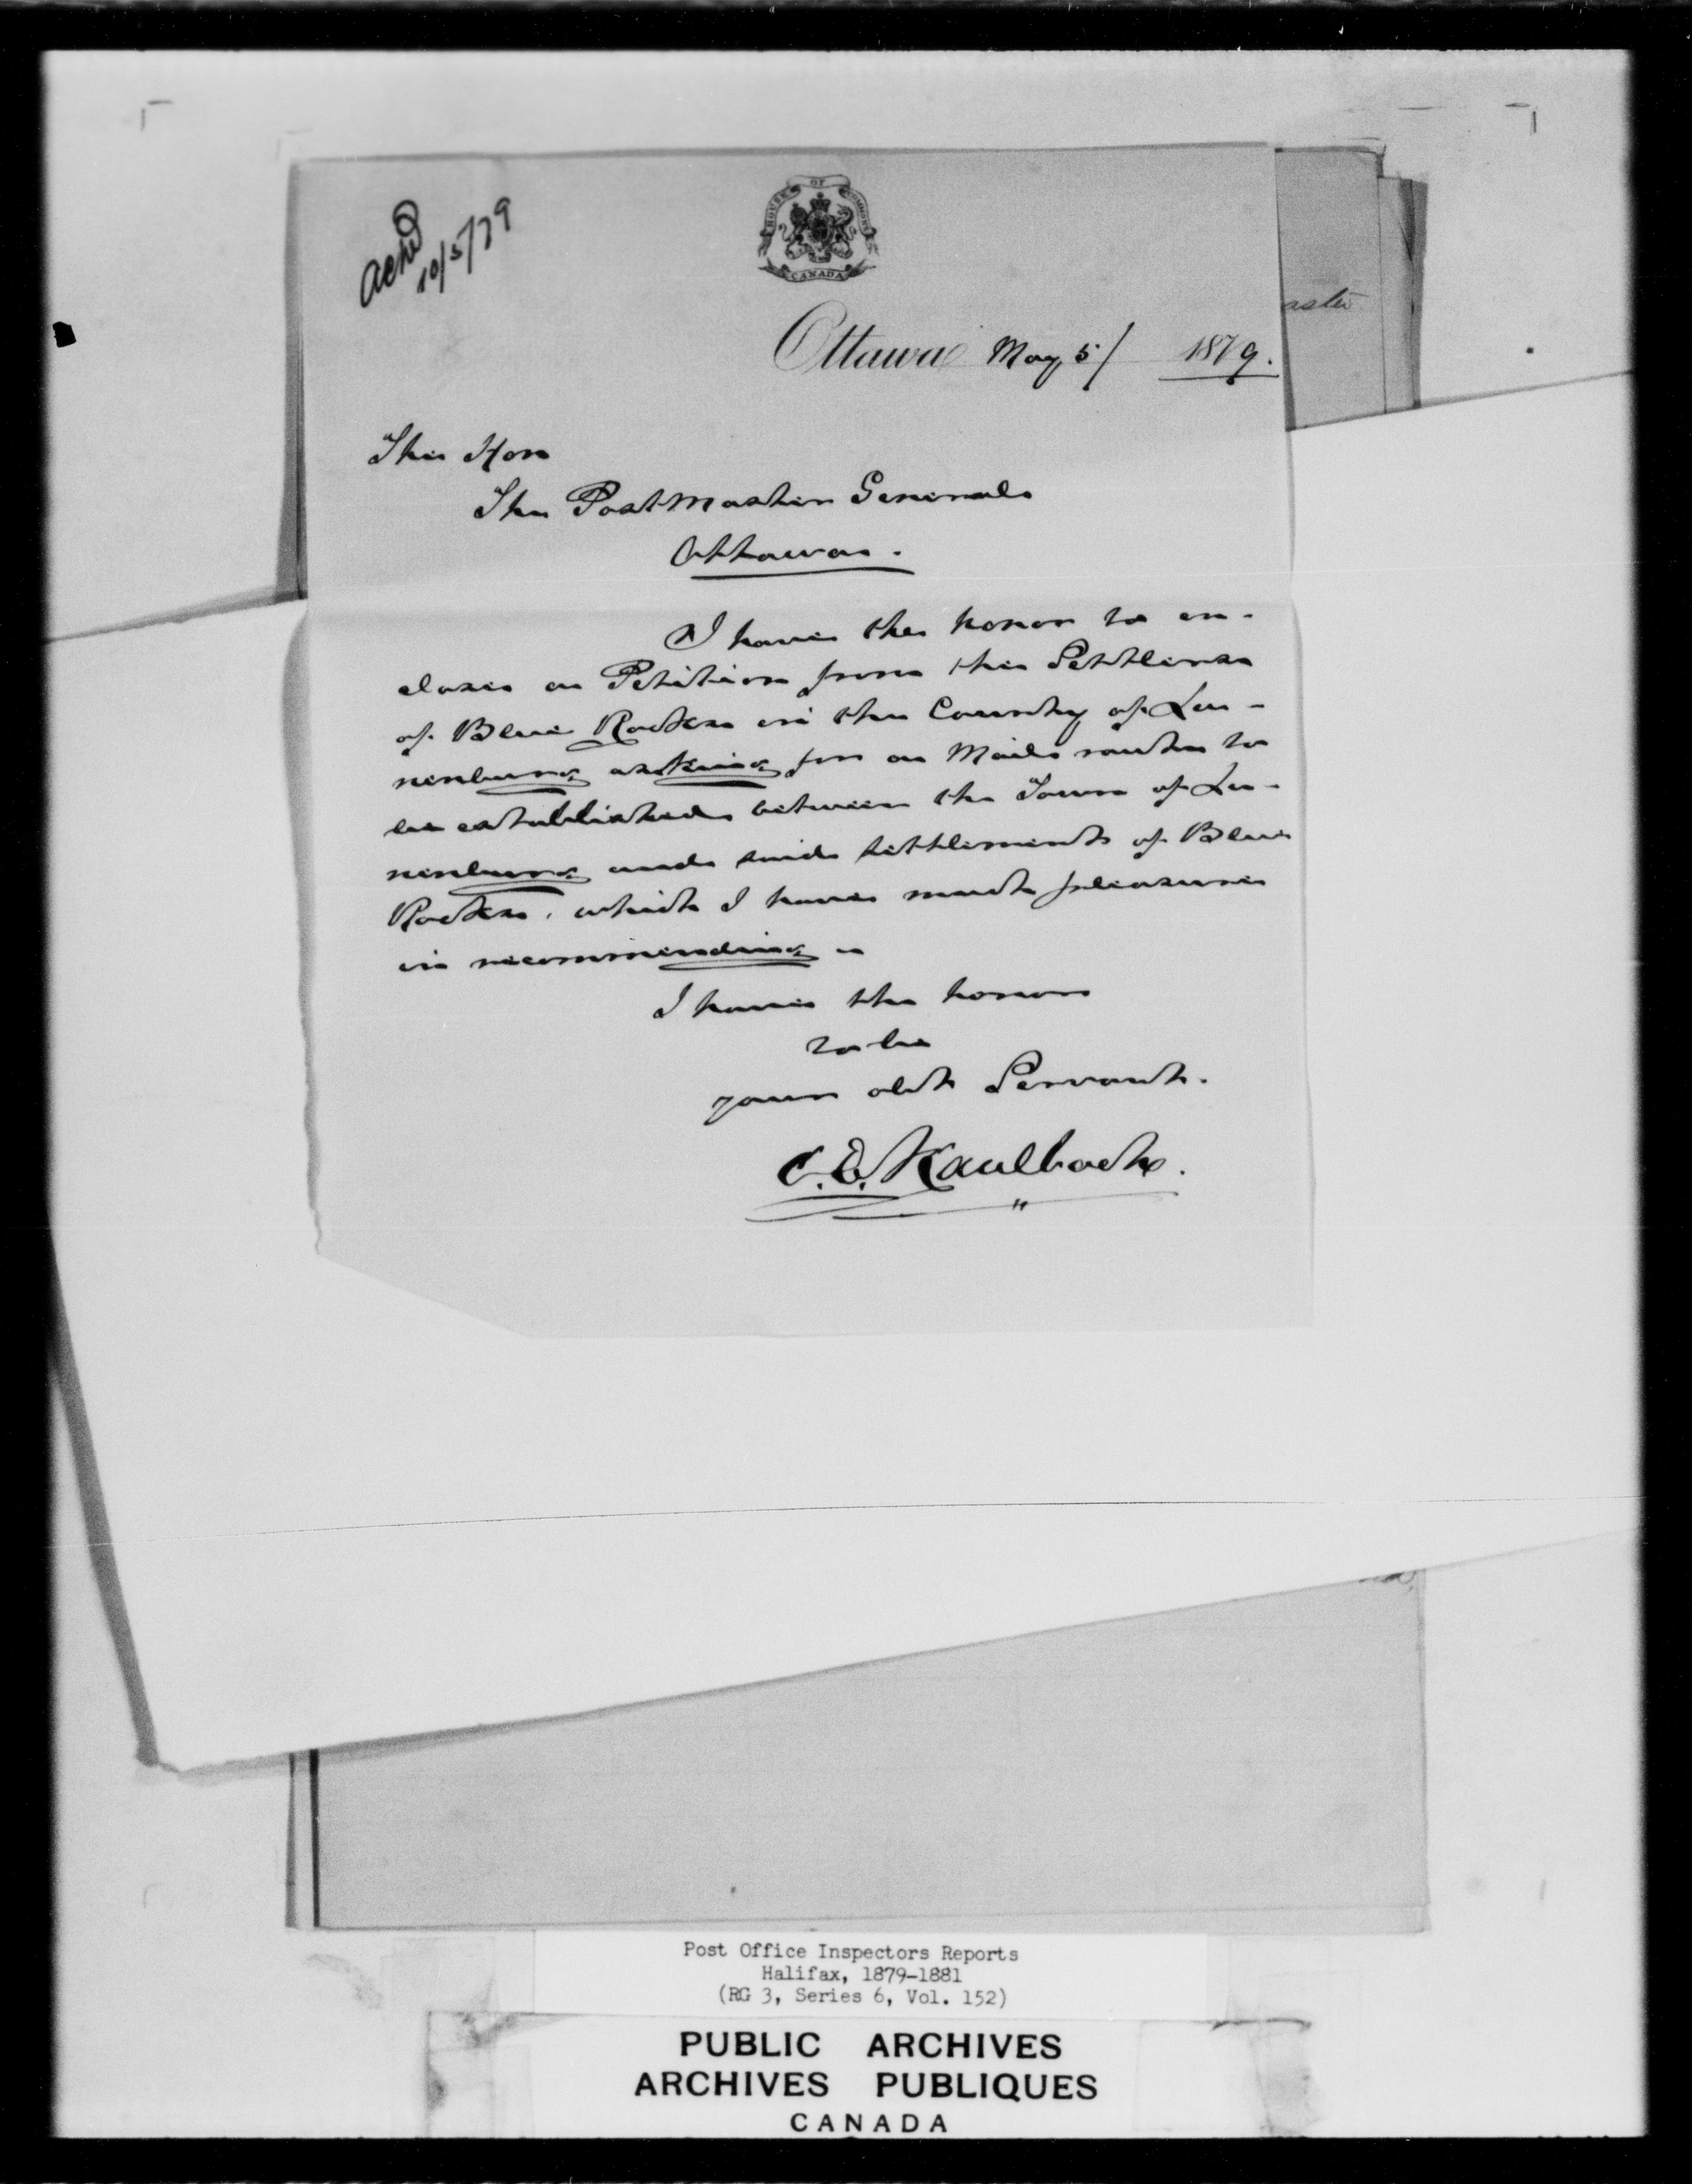 Ackd
10/5/79
HOUSE OF COMMONS
CANADA
Ottawa May 5/ 1879.
aster
The Hon
The Post Master General
Ottawa.
I have the honor to en-
close a Petition from the Settlers
of Blue Rocks in the County of Lu-
nenburg asking for a Mail route to
be established between the Town of Lu-
nenburg and said settlement of Blue
Rocks, which I have much pleasure
in recommending
I have the honor
to be
your obdt Servant.
C. E. Kaulbach.
Post Office Inspectors Reports
Halifax, 1879-1881
(RG 3, Series 6, Vol. 152)
PUBLIC ARCHIVES
ARCHIVES PUBLIQUES
CANADA